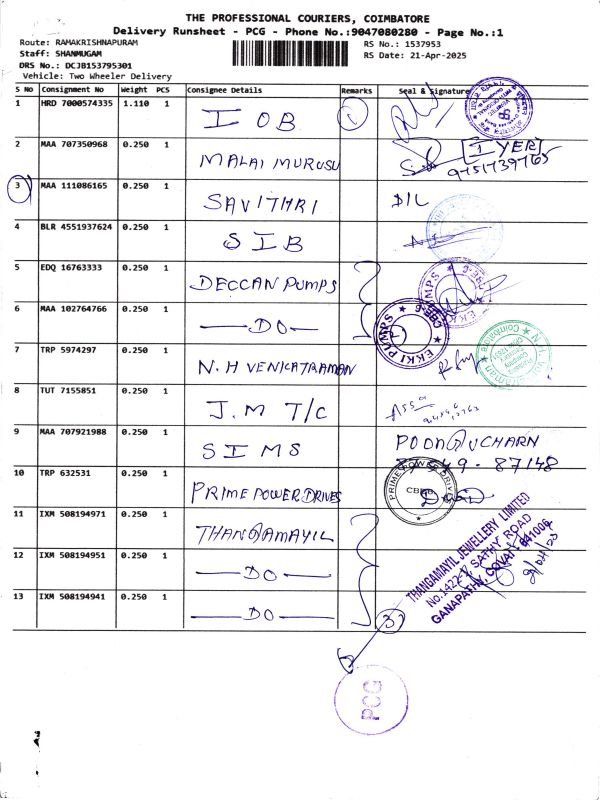 THE PROFESSIONAL COURIERS, COIMBATORE
Delivery Runsheet - PCG - Phone No.:9047080280 - Page No.:1
Route: RAMAKRISHNAPURAM
Staff: SHANMUGAM
DRS No.: DCJB153795301
Vehicle: Two Wheeler Delivery
RS No.: 1537953
RS Date: 21-Apr-2025
S NO Consignment No Weight PCS Consignee Details Remarks Seal & Signature
1 HRD 7000574335 1.110 1 I O B 1
2 MAA 707350968 0.250 1 MALAI MURUSU I YER
9751739765
3 MAA 111086165 0.250 1 SAVITHRI DIL
4 BLR 4551937624 0.250 1 S I B
5 EDQ 16763333 0.250 1 DECCAN PUMPS
6 MAA 102764766 0.250 1 — DO —
EKKI PUMPS ★ CBE-6 ★
7 TRP 5974297 0.250 1 N. H VENKATRAMAN
8 TUT 7155851 0.250 1 J.M T/C
9 MAA 707921988 0.250 1 S I M S
10 TRP 632531 0.250 1 PRIME POWER DRIVES
PRIME POWER DRIVES
11 IXM 508194971 0.250 1 THANGAMAYIL
12 IXM 508194951 0.250 1 — DO —
13 IXM 508194941 0.250 1 — DO — 3
THANGAMAYIL JEWELLERY LIMITED
SATHY ROAD
PCG